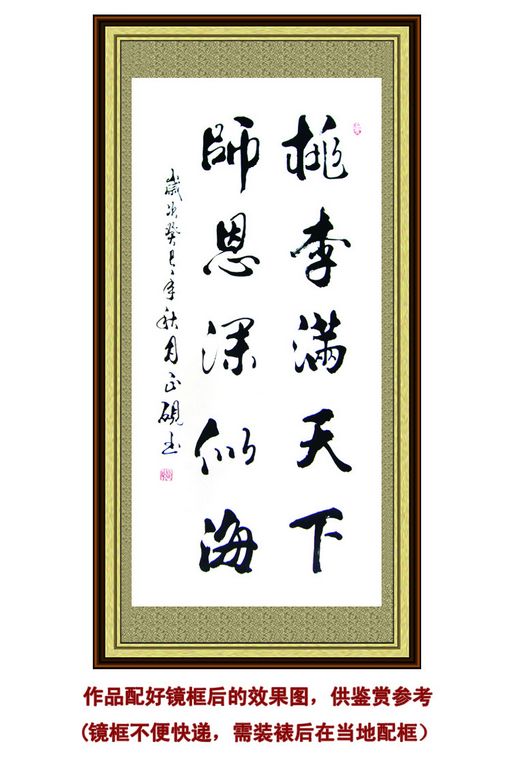 桃李满天下
師恩深似海
歲次癸巳年秋月正硯书
作品配好镜框后的效果图，供鉴赏参考
(镜框不便快递，需装裱后在当地配框）